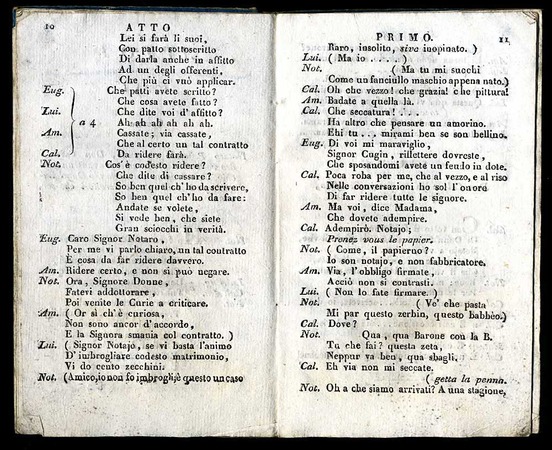 10 ATTO
Lei si farà li suoi,
Con patto sottoscritto
Di darla anche in affitto
Ad un degl offerenti,
Che più ci vuò applicar.
Eug. Che patti avete scritto?
Che cosa avete fatto?
Lui. Che dite voi d'affitto?
a 4 Ah ah ah ah ah ah.
Am. Cassate; via cassate,
Che al certo un tal contratto
Cal. Da ridere farà.
Not. Cos'è codesto ridere?
Che dite di cassare?
So ben quel ch'ho da scrivere,
So ben quel ch'ho da fare:
Andate se volete,
Si vede ben, che siete
Gran sciocchi in verità.
Eug. Caro Signor Notaro,
Per me vi parlo chiaro, un tal contratto
È cosa da far ridere davvero.
Am. Ridere certo, e non si può negare.
Not. Ora, Signore Donne,
Fatevi addottorare,
Poi venite le Curie a criticare.
Am. ( Or sì ch'è curiosa,
Non sono ancor d'accordo,
E la Signora smania col contratto. )
Lui. ( Signor Notajo, se vi basta l'animo
D'imbrogliare codesto matrimonio,
Vi do cento zecchini.
Not. (Amico, io non so imbrogli, è questo un caso
PRIMO. 11
Raro, insolito, sive inopinato. )
Lui. ( Ma io . . . . . )
Not. ( Ma tu mi succhi
Come un fanciullo maschio appena nato.)
Cal. Oh che vezzo! che grazia! che pittura!
Am. Badate a quella là.
Cal. Che seccatura! . . . .
Ha altro che pensare un amorino.
Ehi tu . . . mirami ben se son bellino.
Eug. Di voi mi maraviglio,
Signor Cugin, riflettere dovreste,
Che sposandomi avete un feudo in dote.
Cal. Poca roba per me, che al vezzo, e al riso
Nelle conversazioni ho sol l'onore
Di far ridere tutte le signore.
Am. Ma voi, dice Madama,
Che dovete adempire.
Cal. Adempirò. Notajo;
Prenez vous le papier.
Not. ( Come, il papierno?
Io son notajo, e non fabbricatore.
Am. Via, l'obbligo firmate,
Acciò non si contrasti.
Lui. ( Non lo fate firmare. )
Not. ( Ve' che pasta
Mi par questo zerbin, questo babbèo.)
Cal. Dove?
Not. Qua, qua Barone con la B.
Tu che fai? questa zeta,
Neppur va ben, qua sbagli.
Cal. Eh via non mi seccate.
( getta la penna.
Not. Oh a che siamo arrivati? A una stagione,